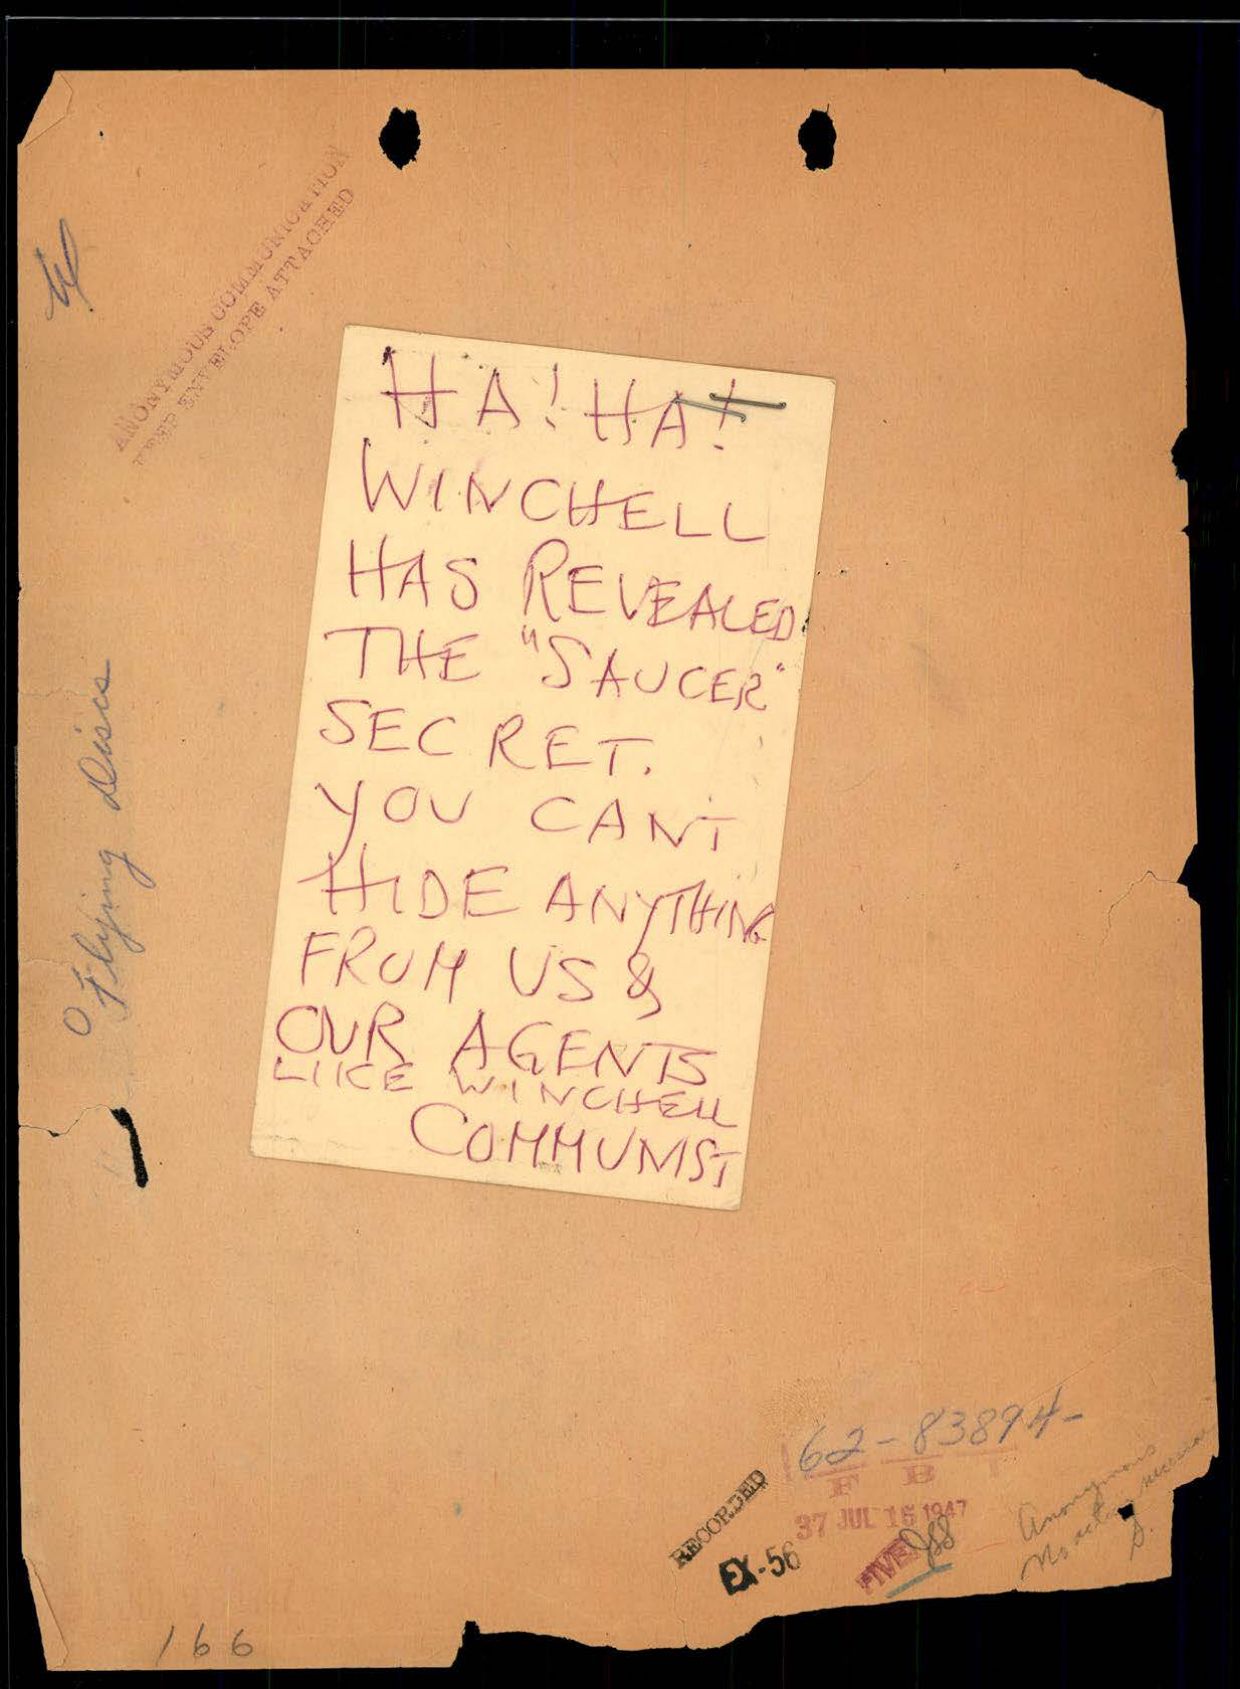 ANONYMOUS COMMUNICATION
PER ENVELOPE ATTACHED
HA! HA!
WINCHELL
HAS REVEALED
THE "SAUCER"
SECRET.
YOU CANT
HIDE ANYTHING
FROM US &
OUR AGENTS
LIKE WINCHELL
COMMUMST
Flying Discs
62-83894-
F B I
RECORDED
37 JUL 16 1947
EX-56
FIVE
Anonymous
No action necessary
166